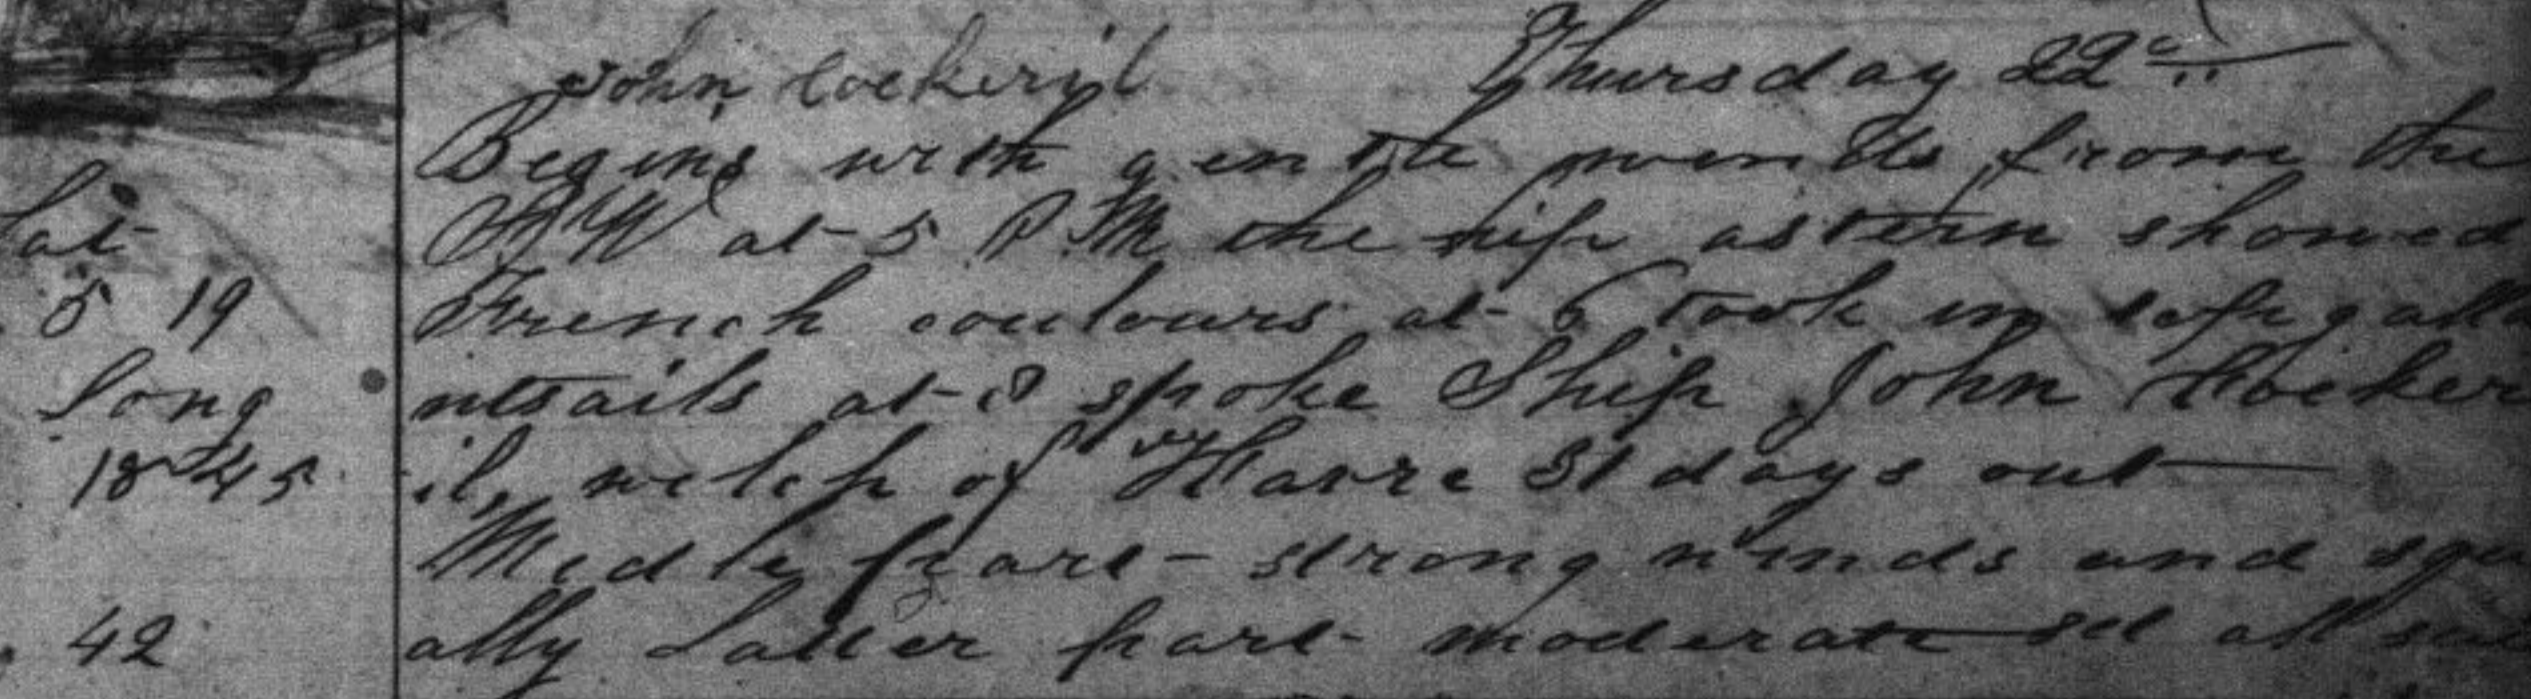 John Cockeril Thursday 22d
Begins with gentle winds from the
Lat
NW at 5 P.M the ship astern showed
5 19
French coulours at 6 took in topgalla
Long
ntsails at 8 spoke Ship John Cocker
18 45
il, of Havre 31 days out
Medle part strong winds and squ
42
ally Latter part moderate set all sail